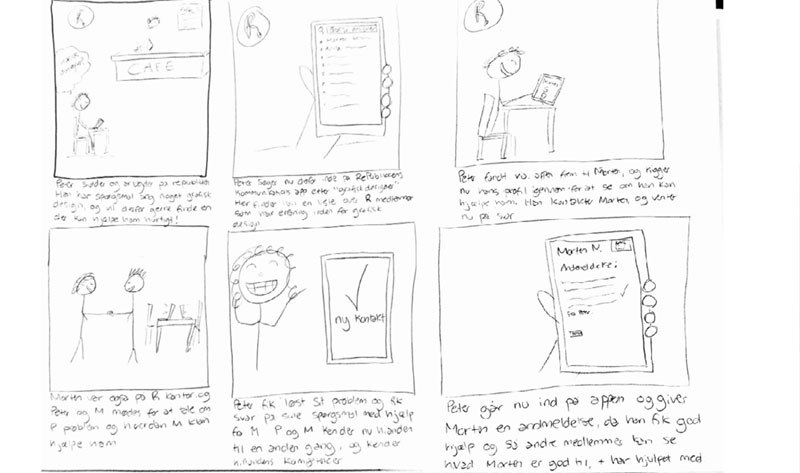 R
CAFE
Peter sidder og arbejder på republikken
Han har spørgsmål ang noget grafisk
design, og vil derfor gerne finde en
der kan hjælpe ham hurtigt!
R
Peter søger nu derfor inde på Republikkens
Kommunikations app efter "grafisk designer"
Her finder han en liste over R medlemmer
som har erfaring inden for grafisk
design
R
Peter fandt via appen frem til Morten, og kigger
nu hans profil igennem for at se om han kan
hjælpe ham. Han kontakter Morten, og venter
nu på svar
Morten var også på R kontor og
Peter og M mødes for at tale om
P problem og hvordan M kan
hjælpe ham
ny kontakt
Peter fik løst sit problem og fik
svar på sine spørgsmål med hjælp
fra M. P og M kender nu hinanden
til en anden gang, og kender
hinandens kompetencer
Morten N.
Anmeldelse:
Peter går nu ind på appen og giver
Morten en anmeldelse, da han fik god
hjælp og så andre medlemmer kan se
hvad Morten er god til, + har hjulpet med